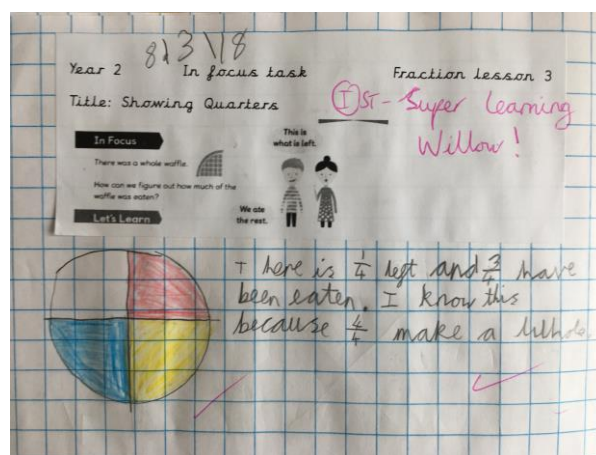 8\3\18
Year 2 In focus task Fraction lesson 3
Title: Showing Quarters
I ST - Super learning
Willow!
In Focus
There was a whole waffle.
How can we figure out how much of the
waffle was eaten?
Let's Learn
This is
what is left.
We ate
the rest.
There is 1/4 left and 3/4 have
been eaten. I know this
because 4/4 make a whole.